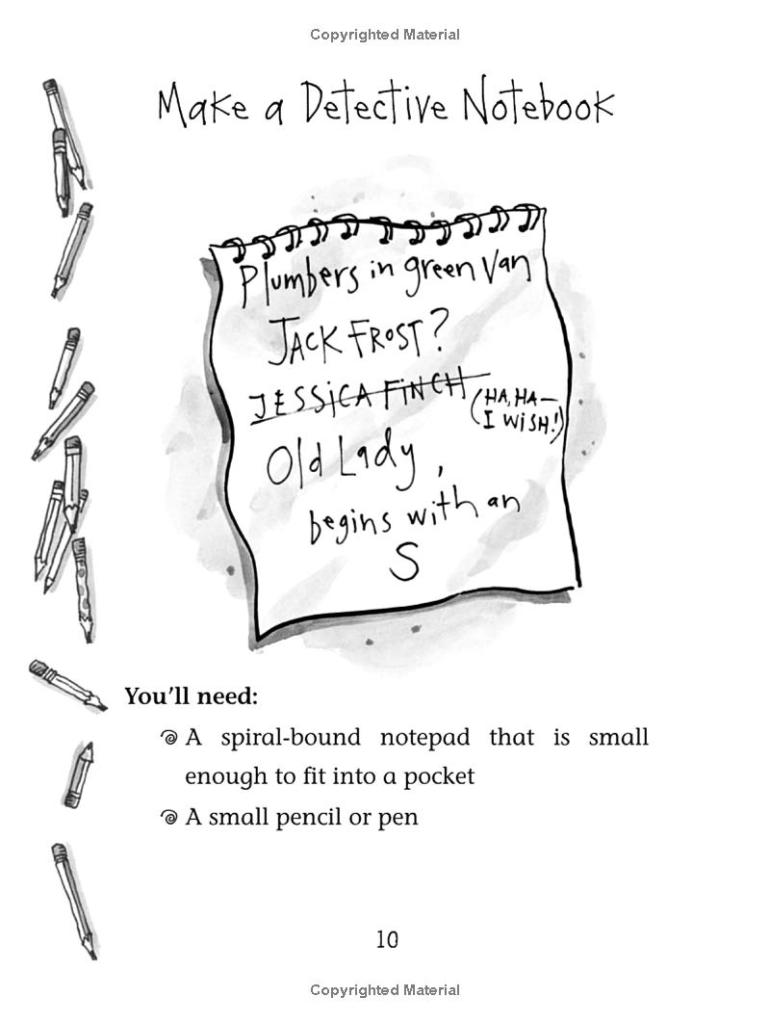 Copyrighted Material
Make a Detective Notebook
Plumbers in green Van
JACK FROST?
JESSICA FINCH
(HA, HA—
I WISH!)
Old Lady,
begins with an
S
You'll need:
A spiral-bound notepad that is small
enough to fit into a pocket
A small pencil or pen
10
Copyrighted Material